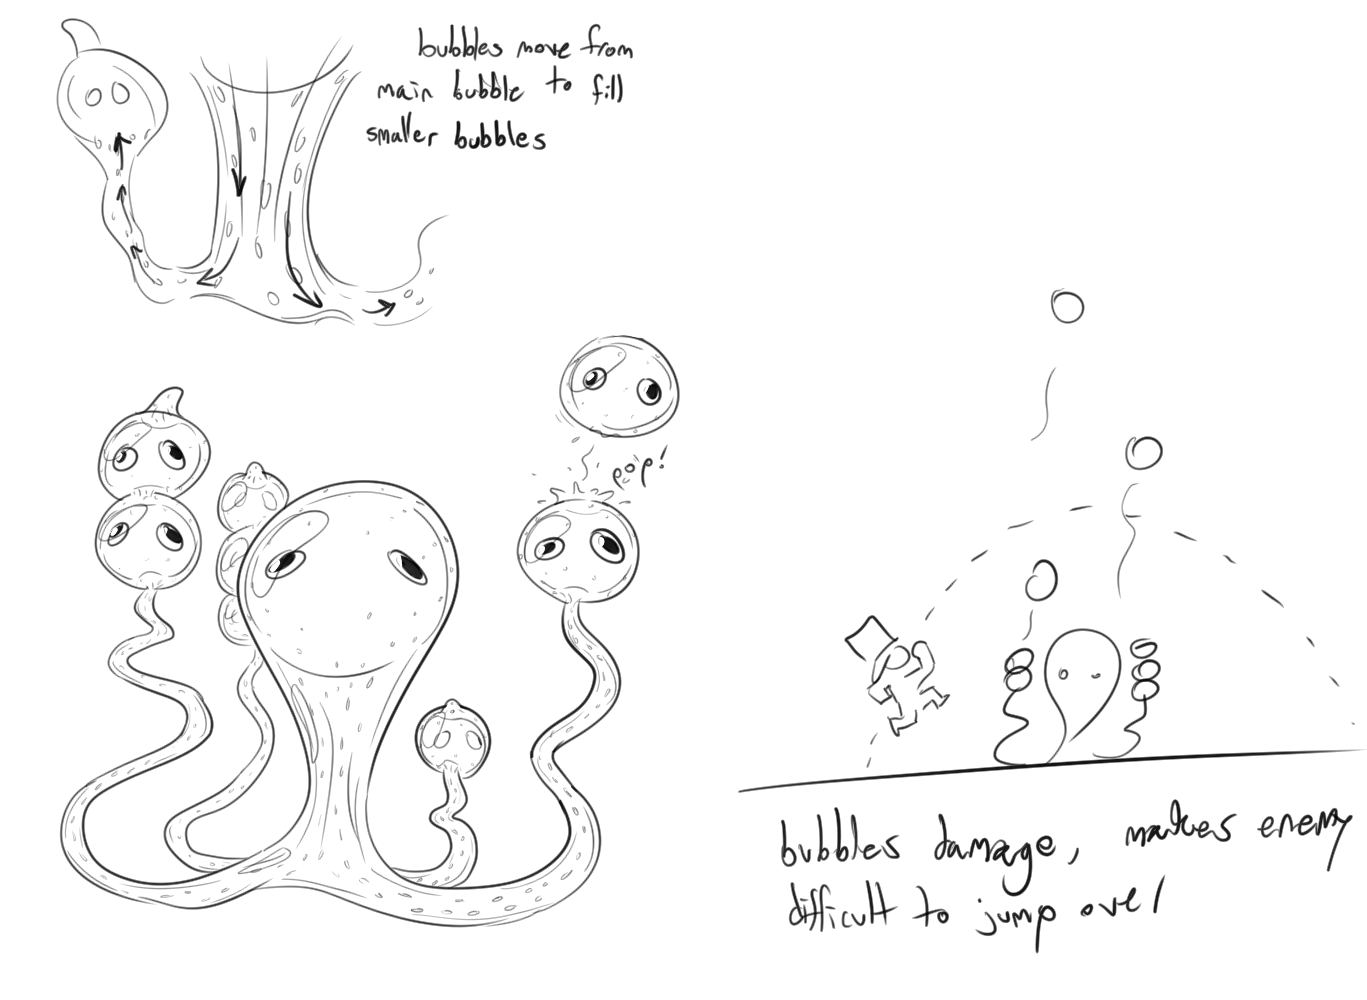 bubbles move from
main bubble to fill
smaller bubbles
pop!
bubbles damage, makes enemy
difficult to jump over